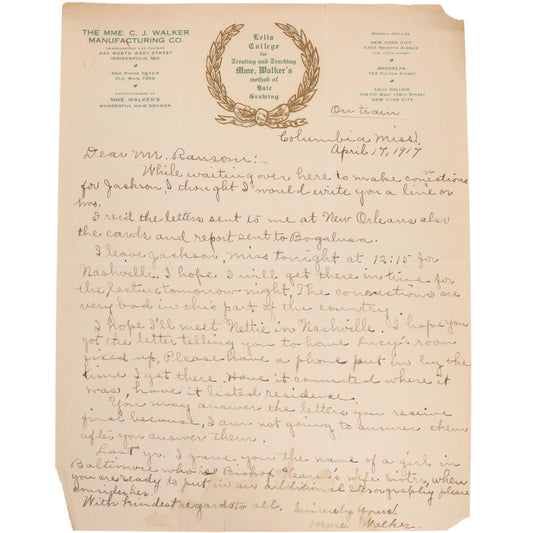 THE MME. C. J. WALKER
MANUFACTURING CO.
HEADQUARTERS AND FACTORY
640 NORTH WEST STREET
INDIANAPOLIS, IND.
MANUFACTURERS OF
MME. WALKER'S
WONDERFUL HAIR GROWER
Lelia
College
for
Treating and Teaching
Mme. Walker's
method of
Hair
Growing
BRANCH OFFICES
NEW YORK CITY
BROOKLYN
LELIA COLLEGE
108-110 WEST 136th STREET
NEW YORK CITY
On train
Columbia Miss.
April 17, 1917
Dear Mr. Ransom:-
While waiting over here to make
for Jackson, I thought I would write you a line or
two.
I rec'd the letters sent to me at New Orleans also
the cards and report sent to Bogalusa.
I leave Jackson, Miss tonight at 12:15 for
Nashville. I hope I will get there in time for
the lecture tomorrow night. The conections are
very bad in this part of the country.
I hope I'll meet Nettie in Nashville. I hope you
got the letter telling you to have Lucy's room
fixed up. Please have a phone put in by the
time I get there. Have it connected where it
was, have it listed residence.
You may answer the letters you receive
final because, I am not going to answer them
after you answer them.
Last yr. I gave you the name of a girl in
Baltimore who is Bishop wife sister, when
you are ready to put in an additional please
consider her.
With kindest regards to all. Sincerely yours,
Mme. Walker.